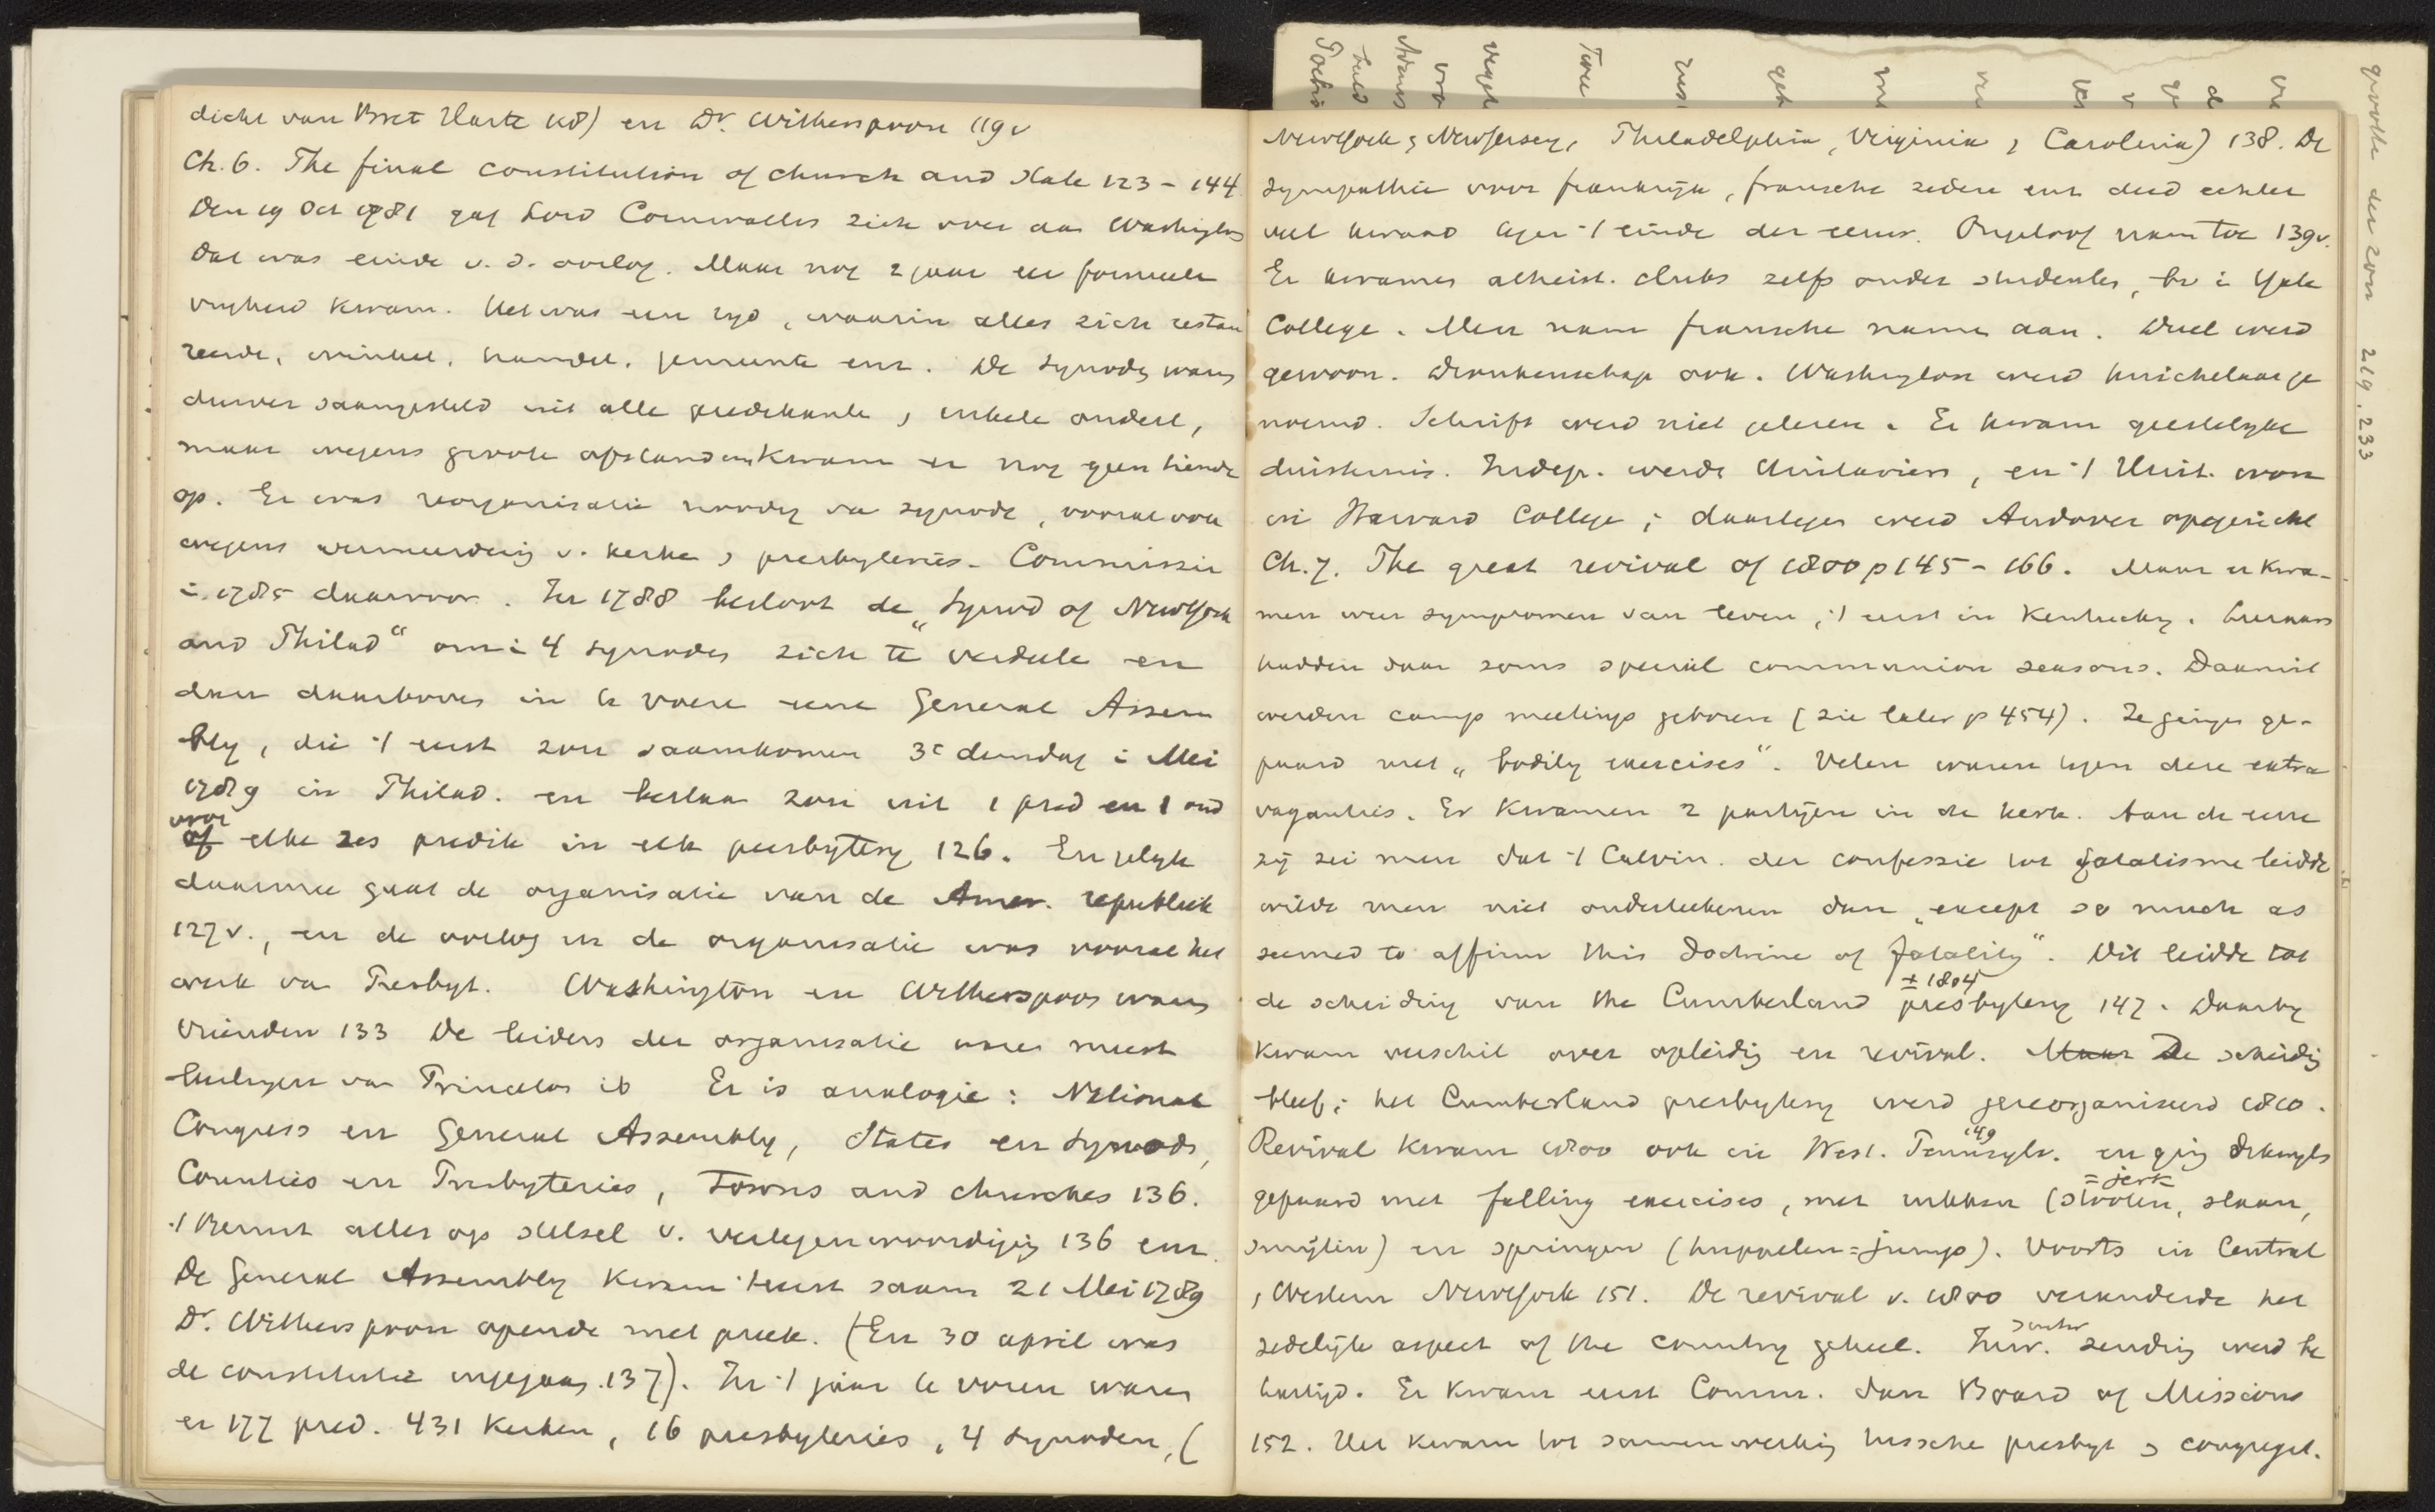 dicht van Bret Harte 118) en Dr. Witherspoon 119v
Ch. 6. The final constitution of church and state 123 - 144.
Den 19 Oct 1781 gaf Lord Cornwallis zich over aan Washington
Dat was einde v. d. oorlog. Maar nog 2 jaar eer formeele
vrijheid kwam. Het was een tijd, waarin alles zich restau
reerde, winkel, handel, gemeente enz. De synodes waren
saamgesteld uit alle predikanten, enkele ouderl,
maar wegens groote afstanden kwam er nog geen tiende
op. Er was reorganisatie noodig van synode, vooral ook
wegens vermeerdering v. kerken, presbyteries. Commissie
i. 1785 daarvoor. In 1788 besloot de „Synod of NewYork
and Philad" om i 4 synodes zich te verdeele en
dan daarboven in te voere eene General Assem
bly, die 't eerst zou saamkomen 3e dinsdag i Mei
1789 in Philad. en bestaan zou uit 1 pred en 1 oud
voor
of elke zes predik in elk presbytery 126. En gelijk
daarmee gaat de organisatie van de Amer. republiek
127v., en de oorlog en de organisatie was vooral het
werk van Presbyt. Washington en Witherspoon waren
vrienden 133 De leiders der organisatie waren meest
leerlingen van Princeton ib Er is analogie: National
Congress en General Assembly, States en Synods,
Counties en Presbyteries, Towns and churches 136.
't Berust alles op stelsel v. vertegenwoordiging 136 enz.
De General Assembly kwam 't eerst saam 21 Mei 1789
Dr. Witherspoon opende met preek. (En 30 april was
de constitutie ingegaan 137). In 't jaar te voren waren
er 177 pred. 431 Kerken, 16 presbyteries, 4 synoden, (
NewYork, NewJersey, Philadelphia, Virginia, Carolina) 138. De
sympathie voor frankrijk, fransche zeden enz deed echter
veel kwaad tegen 't einde der eeuw. Ongeloof nam toe 139v.
Er kwamen atheist. clubs zelfs onder studenten, bv i Yale
College. Men nam fransche namen aan. Duel werd
gewoon. Dronkenschap ook. Washington werd huichelaar ge
noemd. Schrift werd niet gelezen. Er kwam geestelijke
duisternis. Indep. werden Unitariers, en 't Unit. won
in Harvard College; daartegen werd Andover opgericht
Ch. 7. The great revival of 1800 p 145 - 166. Maar er kwa-
men weer symptomen van leven, 't eerst in Kentucky.
hadden daar soms special communion seasons. Daaruit
werden camp meetings geboren (zie later p 454). Ze gingen ge-
paard met „bodily exercises". Velen waren tegen deze extra
vaganties. Er kwamen 2 partijen in de kerk. Aan de eene
zij zei men dat 't Calvin. der confessie tot fatalisme leidde
wilde men niet onderteekenen dan „except so much as
seemed to affirm this doctrine of fatality". Dit leidde tot
± 1804
de scheiding van the Cumberland presbytery 147. Daarbij
kwam verschil over opleiding en revival. Maar De scheiding
bleef; het Cumberland presbytery werd gereorganiseerd 1810.
149
Revival kwam 1800 ook in West. Pennsylv. en ging dikwijls
= jerk
gepaard met falling exercises, met rukken (stooten, slaan,
smijten) en springen (huppelen = jump). Voorts in Central
, Western NewYork 151. De revival v. 1800 veranderde het
zedelijk aspect of the country geheel. Inw. zending werd be
hartigd. Er kwam eerst Comm. dan Board of Missions
152. Het kwam tot samenwerking tussche presbyt, congregat.
grootte der zon 219, 233